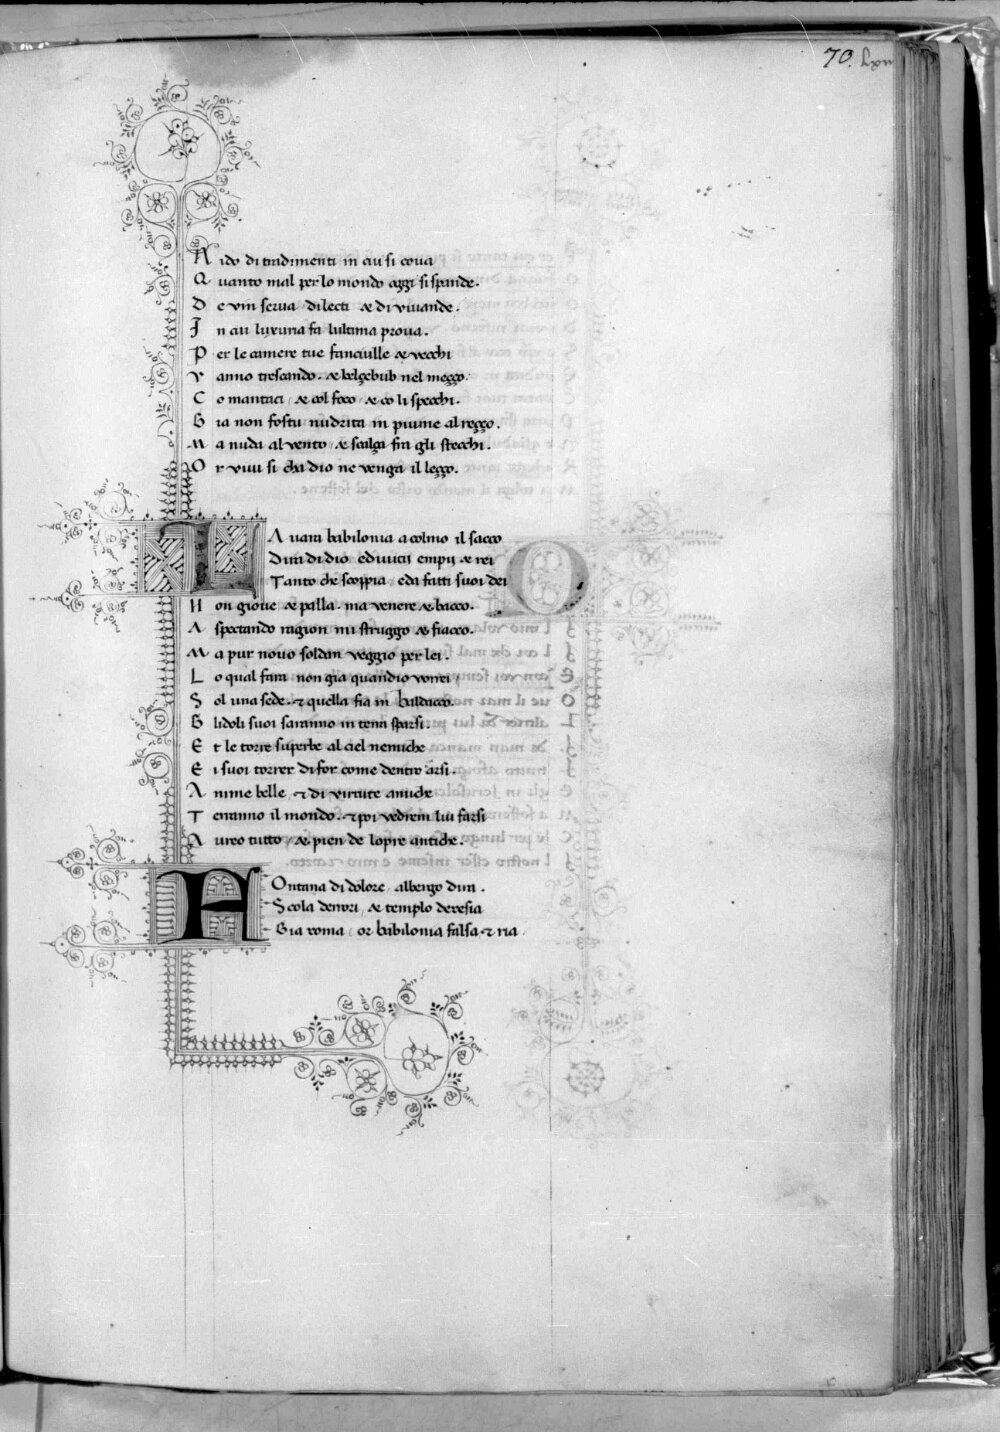 70. Lxii
N ido di tradimenti in cui si coua
Q uanto mal per lo mondo oggi si spande.
D e vin serua di lecti & di viuande.
I n cui luxuria fa lultima proua.
P er le camere tue fanciulle & vecchi
V anno trescando. & belzebub nel mezzo.
C o mantaci & col foco & co li specchi.
G ia non fostu nudrita in piume al rezzo.
M a nuda al vento & scalza fra gli stecchi.
O r viui si cha dio ne venga il lezzo.
L A uara babilonia a colmo il sacco
D ira di dio e di vitii empii & rei
T anto che scoppia. e da fatti suoi dei
N on gioue & palla. ma venere & bacco.
A spectando ragion mi struggo & fiacco.
M a pur nouo soldan veggio per lei.
L o qual fara non gia quandio vorrei
S ol una sede. & quella fia in baldacco.
G lidoli suoi saranno in terra sparsi.
E t le torre superbe al ciel nemiche
E i suoi torrer di for come dentro arsi.
A nime belle & di virtute amiche
T erranno il mondo. & poi vedrem lui farsi
A ureo tutto & pien de lopre antiche.
F Ontana di dolore albergo dira.
S cola derrori & templo deresia
G ia roma or babilonia falsa & ria.